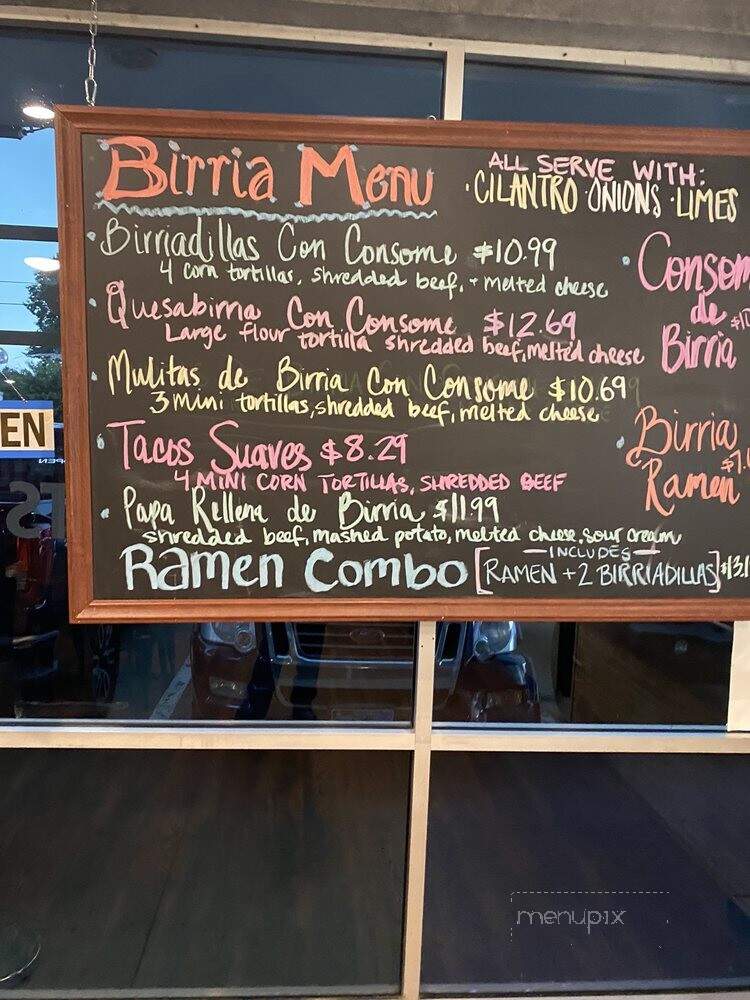 Birria Menu
ALL SERVE WITH:
·CILANTRO ·ONIONS ·LIMES
·Birriadillas Con Consome $10.99
4 corn tortillas, shredded beef, + melted cheese
·Quesabirria Con Consome $12.69
Large flour tortilla shredded beef, melted cheese
·Mulitas de Birria Con Consome $10.69
3 mini tortillas, shredded beef, melted cheese
·Tacos Suaves $8.29
4 MINI CORN TORTILLAS, SHREDDED BEEF
·Papa Rellena de Birria $11.99
shredded beef, mashed potato, melted cheese, sour cream
Ramen Combo
INCLUDES
[RAMEN + 2 BIRRIADILLAS]
·Consom
de
Birria
·Birria
Ramen
EN
menupix